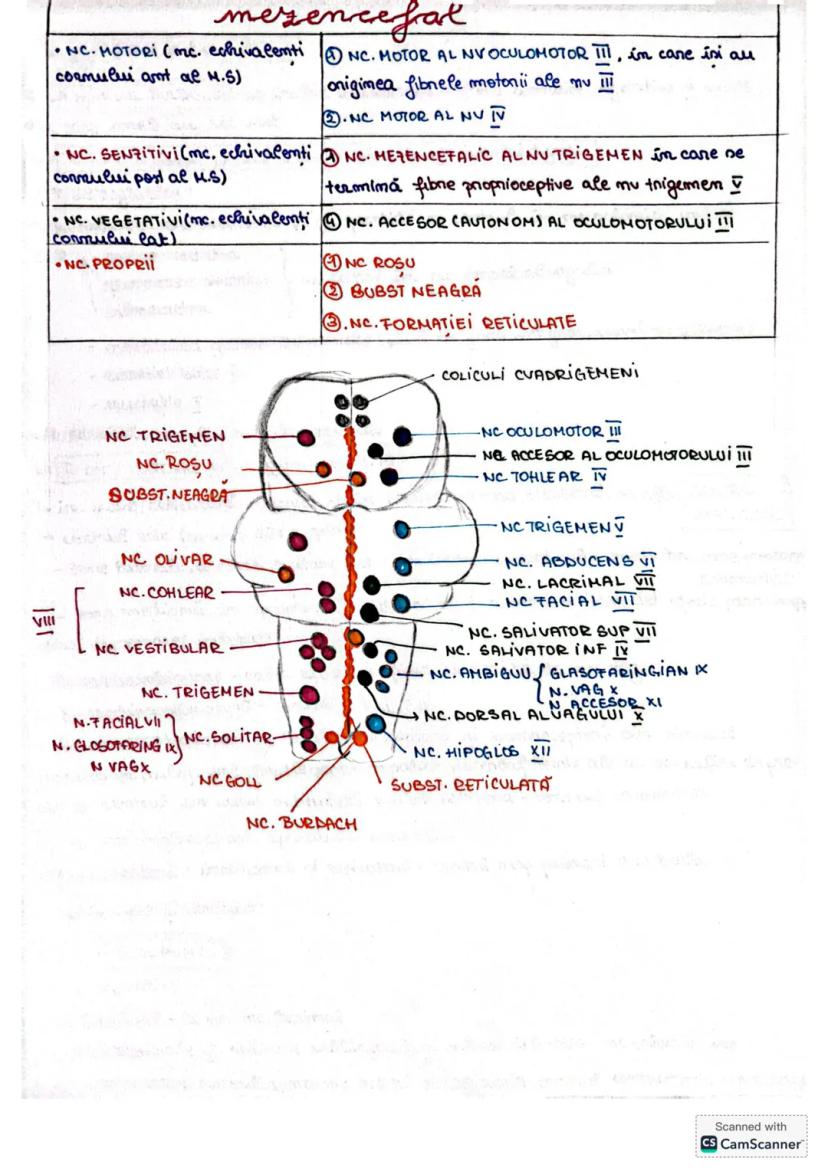 mezencefal
• NC. MOTORI (nc. echivalenți
cornului ant al M.S)
① NC. MOTOR AL NV OCULOMOTOR III, în care își au
originea fibrele motorii ale nv III
②. NC MOTOR AL NV IV
• NC. SENZITIVI (nc. echivalenți
cornului post al M.S)
NC. MEZENCEFALIC AL NV TRIGEMEN în care se
termină fibre proprioceptive ale nv trigemen V
• NC. VEGETATIVI (nc. echivalenți
cornului lat)
④ NC. ACCESOR (AUTONOM) AL OCULOMOTORULUI III
• NC. PROPRII
① NC ROȘU
② SUBST NEAGRĂ
③. NC. FORMAȚIEI RETICULATE
COLICULI CUADRIGEMENI
NC. TRIGEMEN
NC OCULOMOTOR III
NC. ROȘU
ACCESOR AL OCULOMOTORULUI III
SUBST. NEAGRĂ
NC TOHLEAR IV
NC TRIGEMEN V
NC. OLIVAR
NC. ABDUCENS VI
NC. COHLEAR
NC. LACRIMAL VII
NC FACIAL VII
VIII
NC. SALIVATOR SUP VII
NC VESTIBULAR
NC. SALIVATOR INF IV
NC. AMBIGUU { GLASOFARINGIAN IX
N. VAG X
N ACCESOR XI
NC. TRIGEMEN
NC. DORSAL AL VAGULUI X
N. FACIAL VII
N. GLOSOFARING IX } NC. SOLITAR
N VAG X
NC. HIPOGLOS XII
NC GOLL
SUBST. RETICULATĂ
NC. BURDACH
Scanned with
CS CamScanner